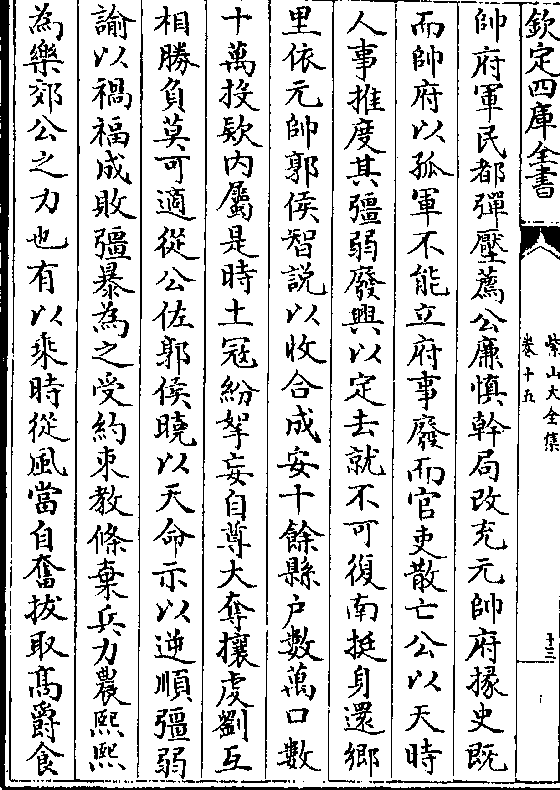 欽定四庫全書
紫山大全集
卷十五
十三
帥府軍民都彈壓薦公廉慎幹局改充元帥府掾史既
而帥府以孤軍不能立府事廢而官吏散亡公以天時
人事推度其彊弱廢興以定去就不可復南挺身還鄉
里依元帥郭侯智說以收合成安十餘縣户數萬口數
十萬投欵内屬是時土冦紛拏妄自尊大奪攘虔劉互
相勝負莫可適從公佐郭侯曉以天命示以逆順彊弱
諭以禍福成敗彊暴為之受約束教條棄兵力農熙熙
為樂郊公之力也有以乘時從風當自奮拔取髙爵食